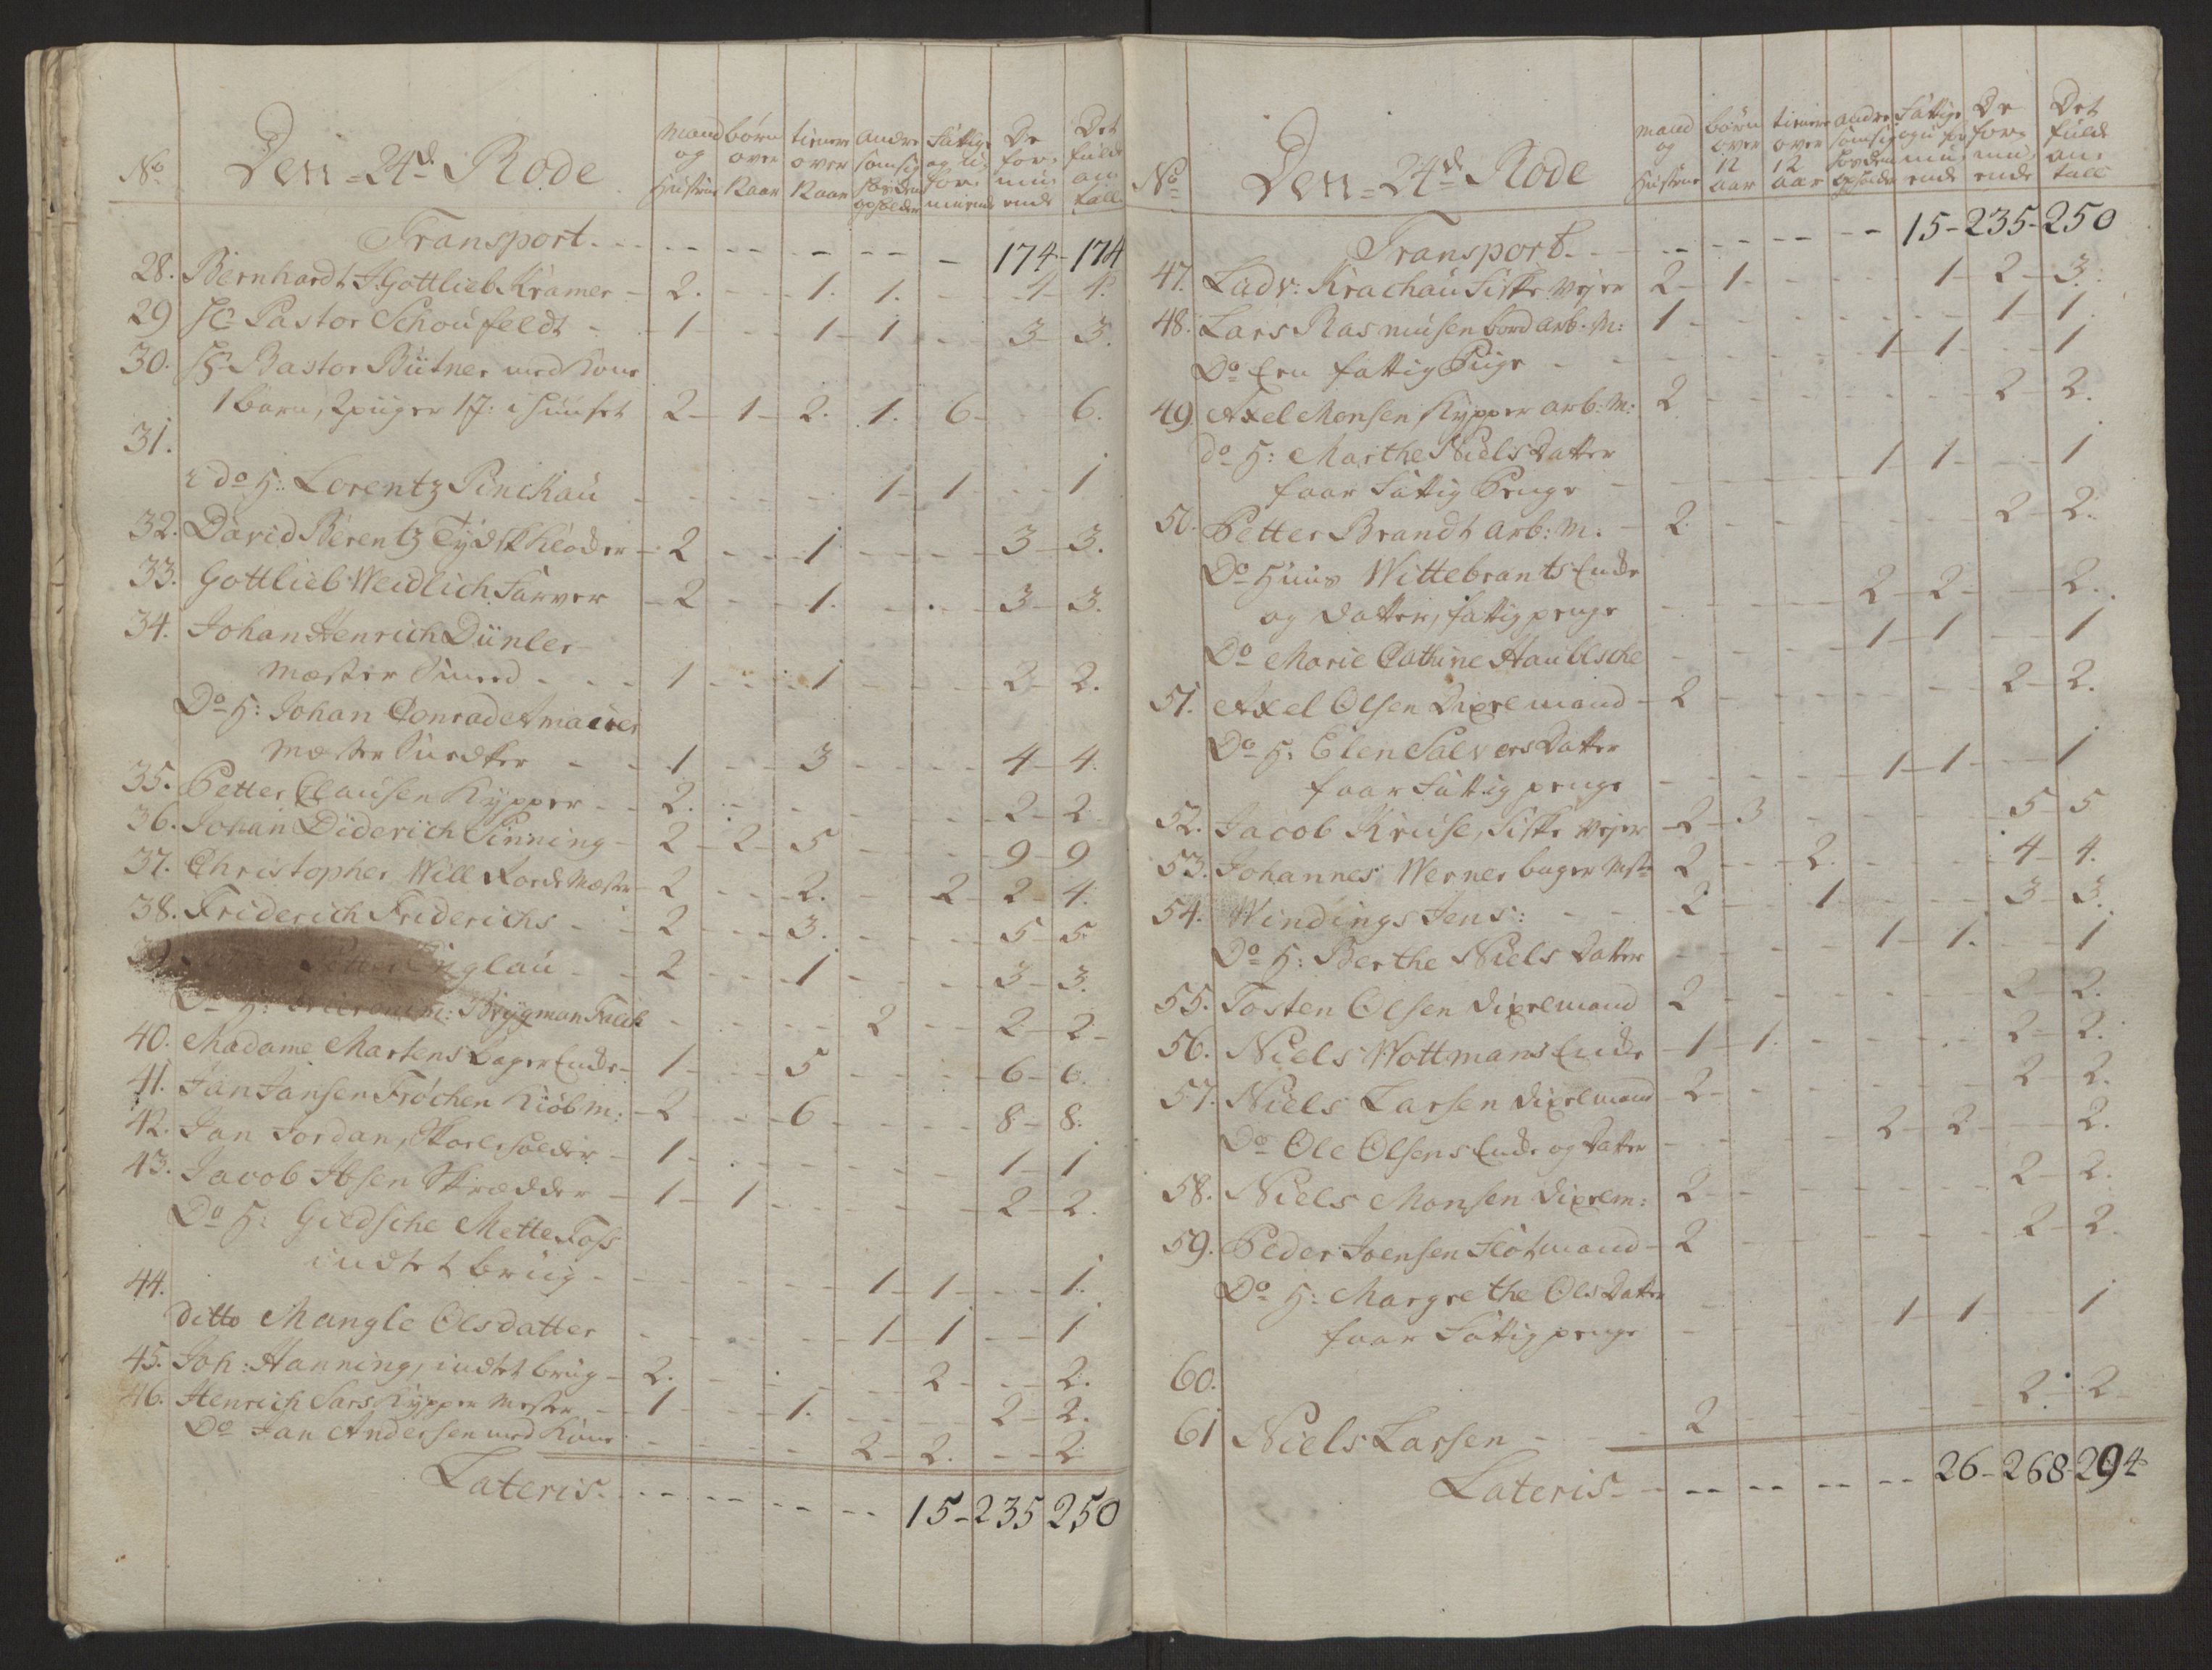 No Den 24de Rode mand og Hustrue børn over 12 aar tienere over 12 aar andre som sig forsiden opholder fattige og u for muende De for muende Det fulde an tall
Transport 174 174
28. Bernhardt J: Gottlieb Kramer 2. 1. 1. 4 4.
29 Hr Pastor Schoufeldt 1 1 1 3 3.
30. Hr Pastor Bütner med Kone
1 barn, 2 piiger 1 J: i Huuset 2 1 2. 1. 6 6.
31.
i do H: Lorentz Pinckau 1 1 1
32. David Berentz Tydsk Kloder 2 1 3 3.
33. Gottlieb Weidlich Farver 2 1. 3 3.
34. Johan Henrich Dünler
Mester Smed 1 1 2 2.
Do H: Johan Conrade Amaier
Mester 1 3 4 4.
35. Petter Clausen Kypper 2. 2 2
36. Johan Diderich Pinning 2 2 5 9 9
37. Christopher Will Rode Mester 2 2. 2 2 4.
38. Friderich Friderichs 2 3. 5 5
Petter 2 1 3 3.
Do H: Brygman 2 2 2
40. Madame Martens bager Enke 1 5 6 6.
41. Jan Jansen Fröchen Kiöbm: 2 6 8 8.
42. Jan Jordan, Skoelholder 1 1 1
43. Jacob Ibsen Skrædder 1 1 2 2.
Do H: Giedsche Mette Foss
indtet brüg 1 1 1.
44.
Ditto Mangle Olsdatter 1 1 1
45. Joh: Hanning, indtet brüg 2. 2 2.
46. Henrich Sars Kypper Mester 1 1. 2 2.
Do Jan Andersen med Kone 2 2. 2
Lateris 15 235 250
No Den 24de Rode mand og Hustrue børn over 12 aar tienere over 12 aar andre som sig forsiden opholde fattige og u for muende De for muende Det fulde an tall
Transport 15 235 250
47. Ludv: Krachau Fiske Vejer 2 1 1 2 3.
48. Lars Rasmusen bord arb. M: 1 1 1.
Do Een fattig Pige 1 1 1
49 Axel Monsen Kypper arb: M: 2 2 2.
do H: Marthe Niels Datter
faar Fattig Penge 1 1 1
50. Petter Brandt arb: M. 2 2 2.
Do Huus Wittebrants Enke
og Datter, fattig penge 2 2 2.
Do Marie Cathrine Haublsche 1 1 1
51. Axel Olsen Dixelmand 2 2 2.
Do H: Elen Salvers Datter
faar Fattig penge 1 1 1
52. Jacob Kruse, Fiske Vejer 2 3 5 5
53. Johannes Werner bager Mstr 2 2. 4 4.
54. Windings Jens: 2 1 3 3.
Do H: Berthe Niels Datter 1 1. 1
55. Tosten Olsen Dixelmand 2 2 2.
56. Niels Wottmans Enke 1 1. 2 2.
57. Niels Larsen Dixelmand 2 2 2.
Do Ole Olsens Enke og Datter 2 2 2.
58. Niels Monsen Dixelm: 2 2 2.
59. Peder Joensen Flötmand 2 2 2.
Do H: Margrethe Ols Datter
faar Fattig penge 1 1 1
60.
61 Niels Larsen 2 2. 2
Lateris 26 268 294